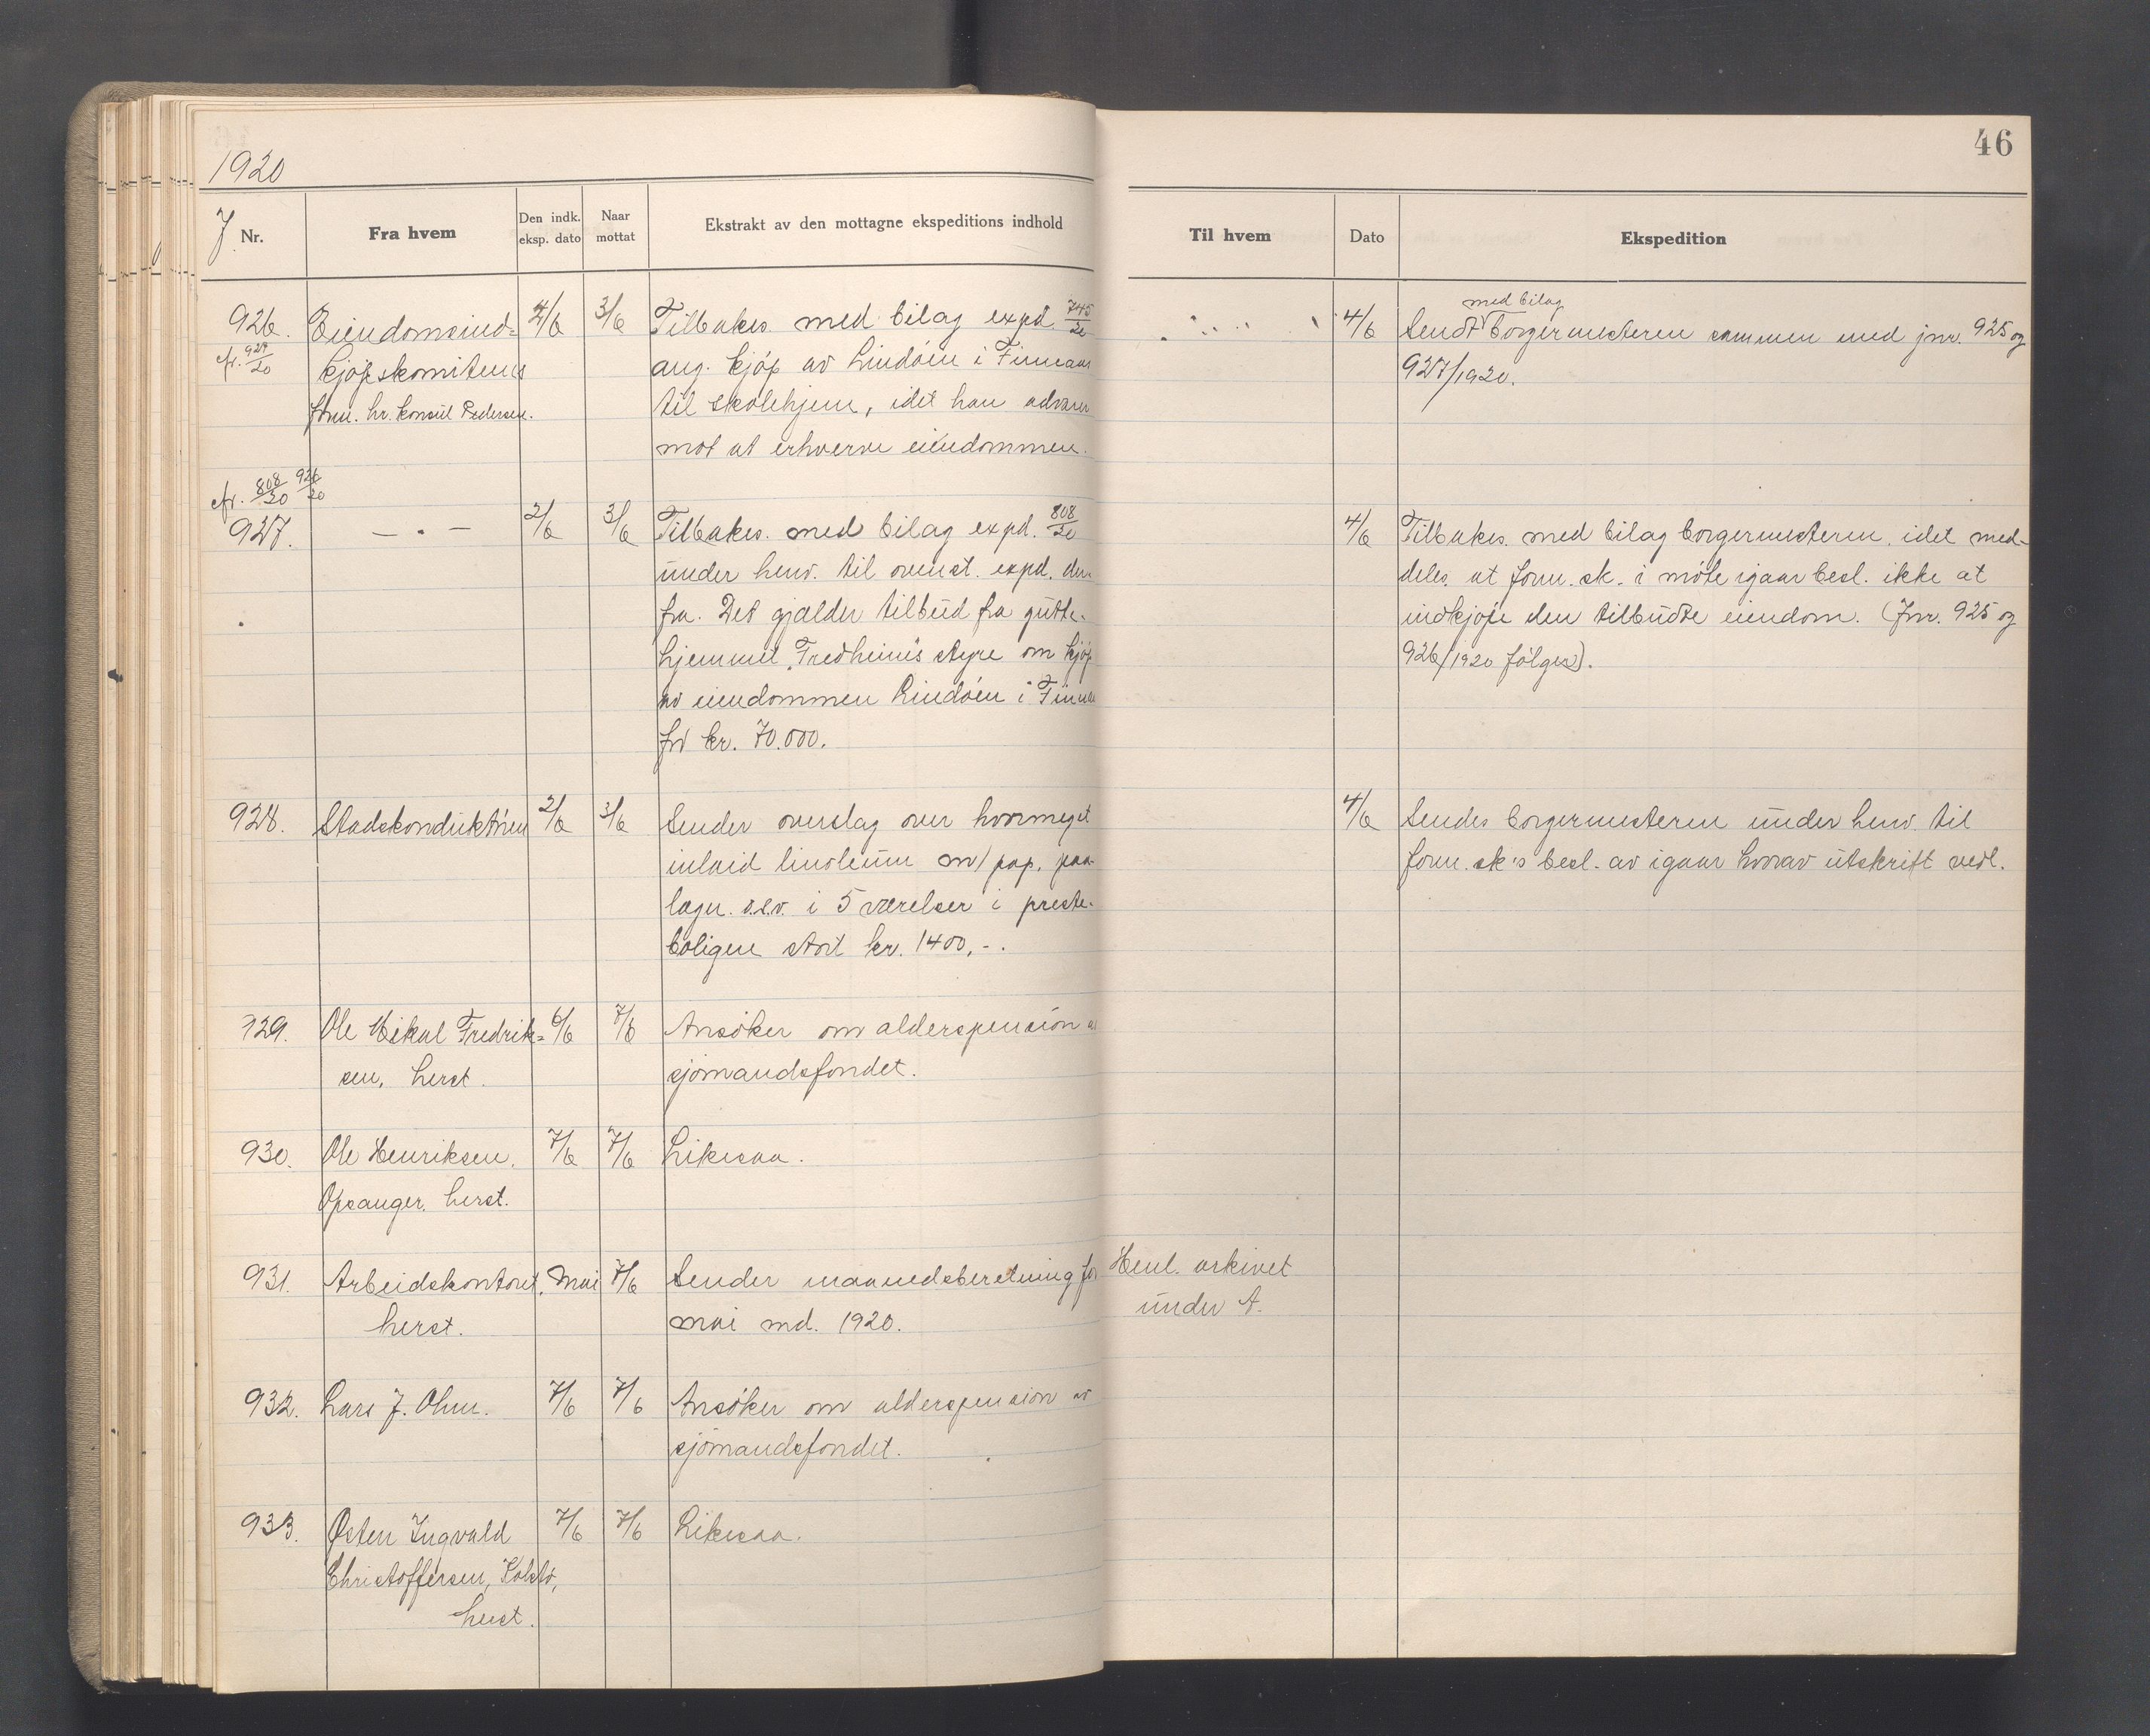 46
1920
J. Nr.
Fra hvem
Den indk. eksp. dato
Naar mottat
Ekstrakt av den mottagne ekspeditions indhold
Til hvem
Dato
Ekspedition
926.
cfr. 927/20
Eiendomsind-
kjøpskomiteens
form. hr. konsul Pedersen.
2/6
3/6
Tilbakes. med bilag expd. 745/20
ang. kjøp av Lindøen i Finnaas
til skolehjem, idet han advarer
mot at erhverve eiendommen.
4/6
med bilag
Sendt borgermesteren sammen med jnr. 925 og
927/1920.
cfr. 808/20 926/20
927.
— . —
2/6
3/6
Tilbakes. med bilag expd. 808/20
under henv. til ovenst. expd. der-
fra. Det gjælder tilbud fra gutte-
hjemmet "Fredheim"s styre om kjøp
av eiendommen Lindøen i
for kr. 70.000.
4/6
Tilbakes. med bilag borgermesteren, idet med-
deles, at form.sk. i møte igaar besl. ikke at
indkjøpe den tilbudte eiendom. (Jnr. 925 og
926/1920 følger).
928.
Stadskonduktøren
2/6
3/6
Sender overslag over hvormeget
inlaid linoleum m/ pap. paa-
lægn. o.s.v. i 5 værelser i preste-
boligen stort kr. 1400,-.
4/6
Sendes borgermesteren under henv. til
form.sk's besl. av igaar hvorav utskrift vedl.
929.
Ole Mikal Fredrik-
sen, herst.
6/6
7/6
Ansøker om alderspension av
sjømandsfondet.
930.
Ole Henriksen,
Opsanger, herst.
7/6
7/6
Likesaa.
931.
Arbeidskontoret,
herst.
Mai
7/6
Sender maanedsberetning for
mai md. 1920.
Henl. arkivet
under A.
932.
Lars J. Ohm.
7/6
7/6
Ansøker om alderspension av
sjømandsfondet.
933.
Østen Ingvald
Christoffersen, Kolstø,
herst.
7/6
7/6
Likesaa.